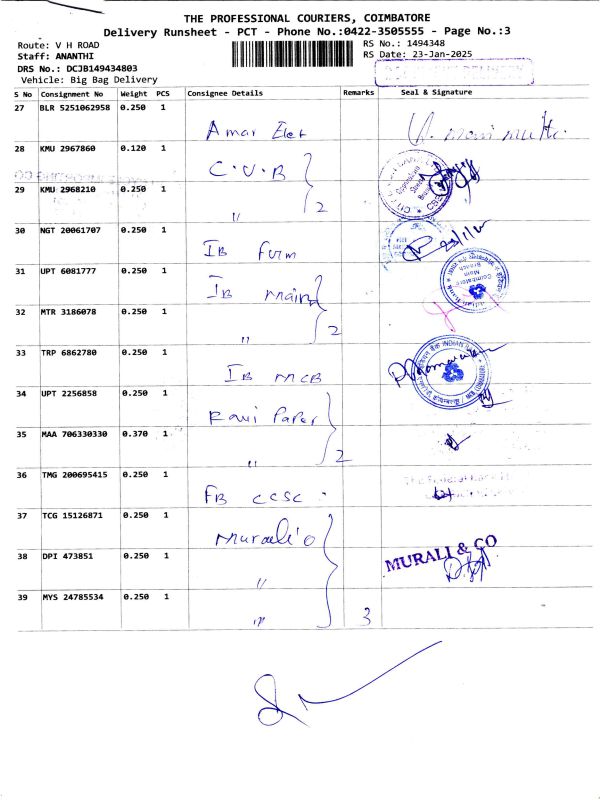 THE PROFESSIONAL COURIERS, COIMBATORE
Delivery Runsheet - PCT - Phone No.:0422-3505555 - Page No.:3
Route: V H ROAD
RS No.: 1494348
Staff: ANANTHI
RS Date: 23-Jan-2025
DRS No.: DCJB149434803
Vehicle: Big Bag Delivery
S No Consignment No Weight PCS Consignee Details Remarks Seal & Signature
27 BLR 5251062958 0.250 1
28 KMU 2967860 0.120 1 C.U.B
29 KMU 2968210 0.250 1 " 2
30 NGT 20061707 0.250 1 IB
31 UPT 6081777 0.250 1 IB main
32 MTR 3186078 0.250 1 " 2
33 TRP 6862780 0.250 1 IB MCB
34 UPT 2256858 0.250 1 Paper
35 MAA 706330330 0.370 1 " 2
36 TMG 200695415 0.250 1 FB CCSC
37 TCG 15126871 0.250 1
38 DPI 473851 0.250 1 " MURALI & CO
39 MYS 24785534 0.250 1 " 3